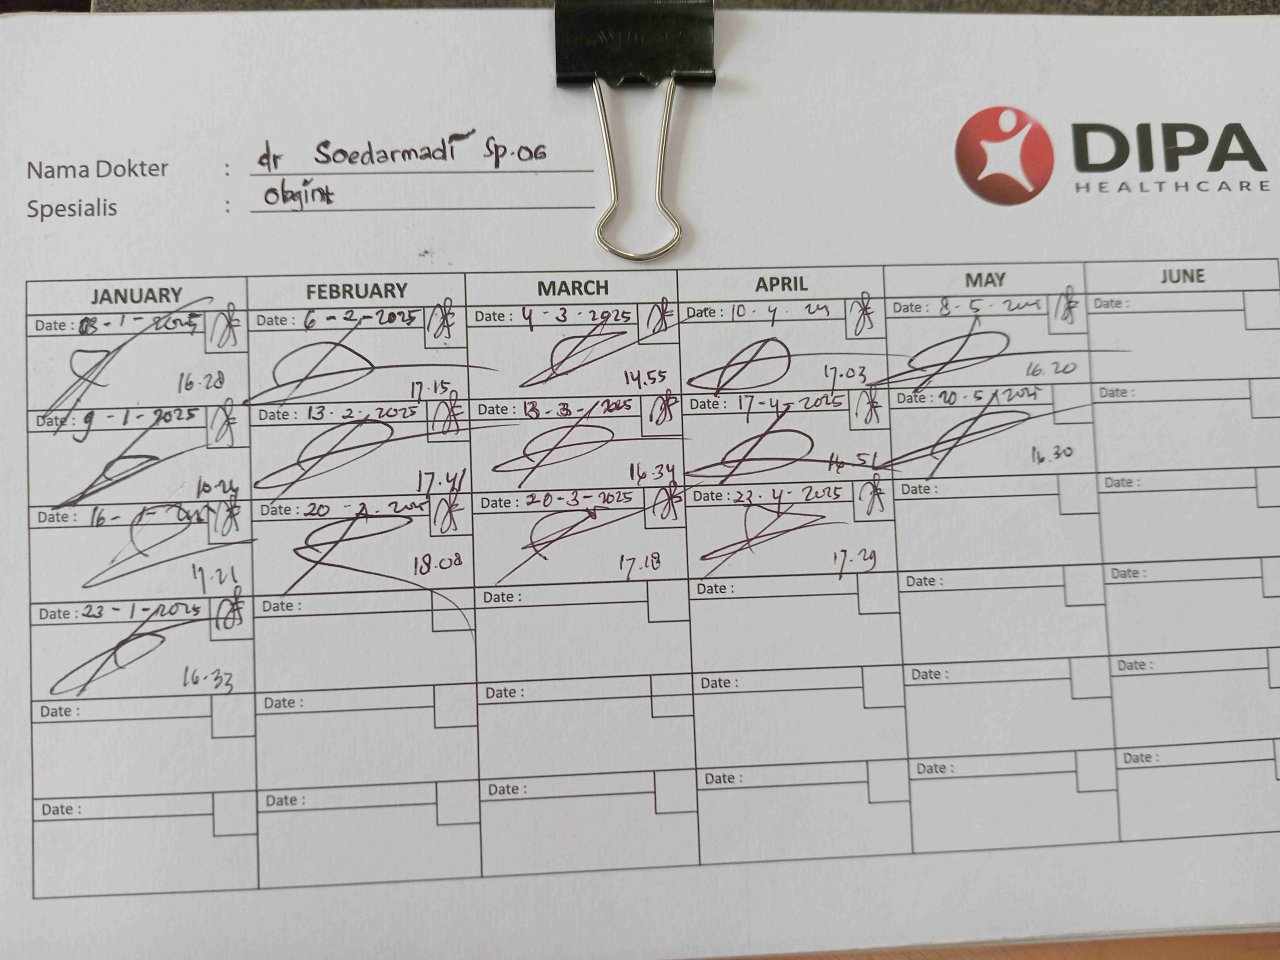 DIPA
HEALTHCARE
Nama Dokter : dr Soedarmadi Sp.OG
Spesialis : Obgint
JANUARY FEBRUARY MARCH APRIL MAY JUNE
Date : 03-1-2025 Date : 6-2-2025 Date : 4-3-2025 Date : 10.4.25 Date : 8-5-2025 Date :
16.28 17.15 14.55 17.03 16.20
Date : 9-1-2025 Date : 13-2-2025 Date : 13-3-2025 Date : 17-4-2025 Date : 20-5-2025 Date :
17.41 16.34 16.51 16.30
Date : 16- Date : 20-2-2025 Date : 20-3-2025 Date : 23.4-2025 Date : Date :
17.21 18.08 17.18 17.29
Date : 23-1-2025 Date : Date : Date : Date : Date :
16.33
Date : Date : Date : Date : Date : Date :
Date : Date : Date : Date : Date : Date :